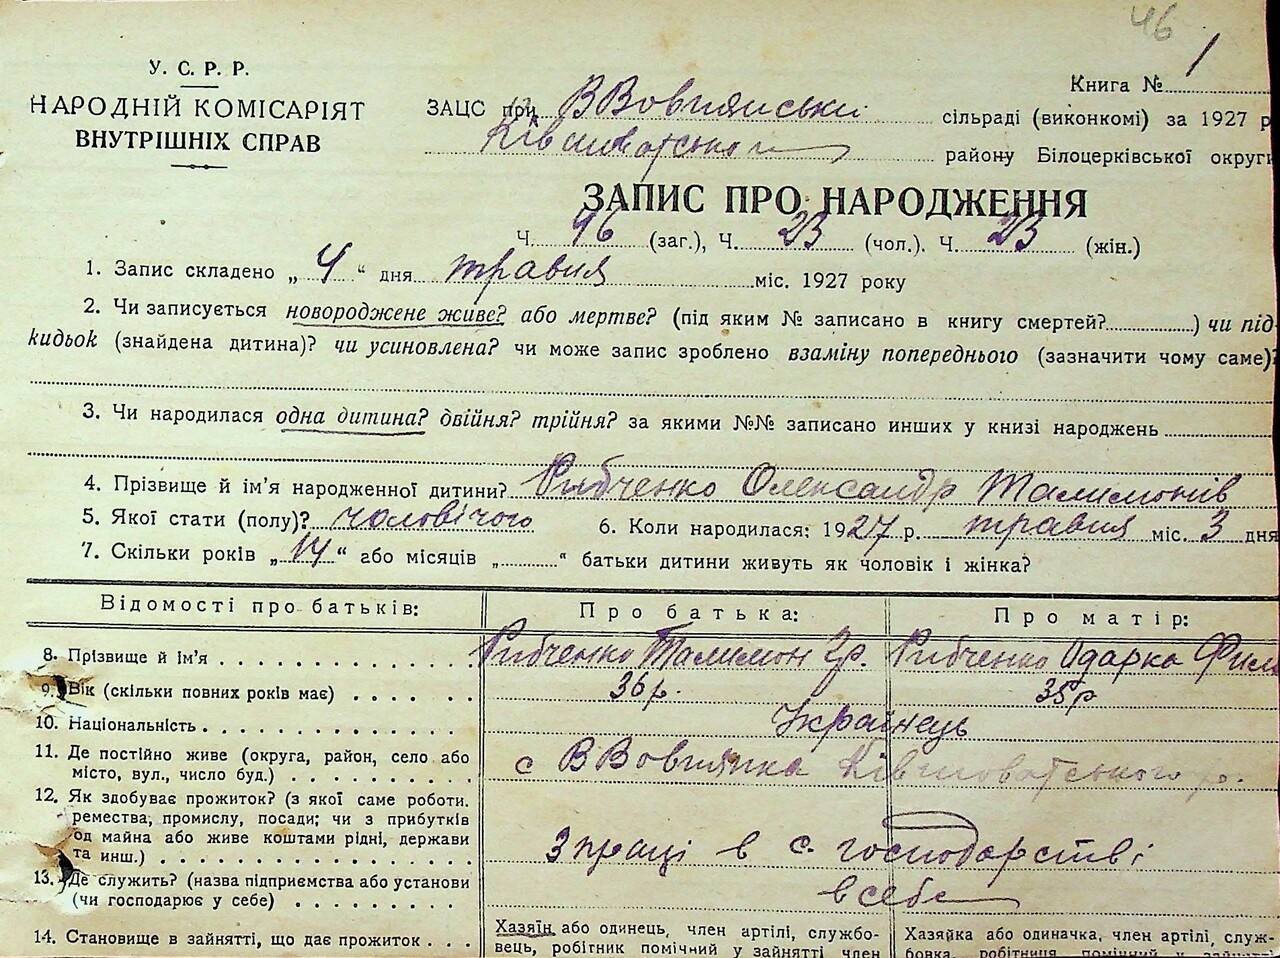 46
У. С. Р. Р.
НАРОДНІЙ КОМІСАРІЯТ
ВНУТРІШНІХ СПРАВ
Книга № 1
ЗАЦС при ВВовнянській сільраді (виконкомі) за 1927 р
Ківшоватського району Білоцерківської округи
ЗАПИС ПРО НАРОДЖЕННЯ
Ч. 46 (заг.), Ч. 23 (чол.). Ч. 23 (жін.)
1. Запис складено „ 4 “ дня травня міс. 1927 року
2. Чи записується новороджене живе? або мертве? (під яким № записано в книгу смертей?) чи під-
кидьок (знайдена дитина)? чи усиновлена? чи може запис зроблено взаміну попереднього (зазначити чому саме)?
3. Чи народилася одна дитина? двійня? трійня? за якими №№ записано инших у книзі народжень
4. Прізвище й ім'я народженної дитини? Рибченко Олександр Талимонів
5. Якої стати (полу)? чоловічого 6. Коли народилася: 1927 р. травня міс. 3 дня
7. Скільки років „ 14 “ або місяців „ “ батьки дитини живуть як чоловік і жінка?
Відомості про батьків: Про батька: Про матір:
8. Прізвище й ім'я Рибченко Талимон Гр. Рибченко Одарка Фил
9. Вік (скільки повних років має) 36 р. 35 р
10. Національність Українець
11. Де постійно живе (округа, район, село або
місто, вул., число буд.) с ВВовнянка Ківшоватського р.
12. Як здобуває прожиток? (з якої саме роботи.
ремества, промислу, посади; чи з прибутків
од майна або живе коштами рідні, держави
та инш.) З праці в с. господарстві
13. Де служить? (назва підприємства або установи
(чи господарює у себе) в себе
14. Становище в зайнятті, що дає прожиток Хазяїн або одинець, член артілі, службо- Хазяйка або одиначка, член артілі, служ-
вець, робітник помічний у зайнятті член бовка, робітниця помічний у зайнятті